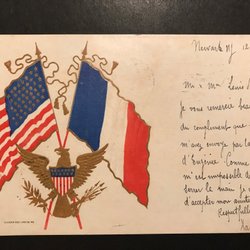 Newark NJ 12
Mr & Mme Louis
Je vous remercie
du complement que
m'avez envoyé par la
d'Eugenie Comme
m'est impossible de
serrer la main
d'accepter mon
Respectfully